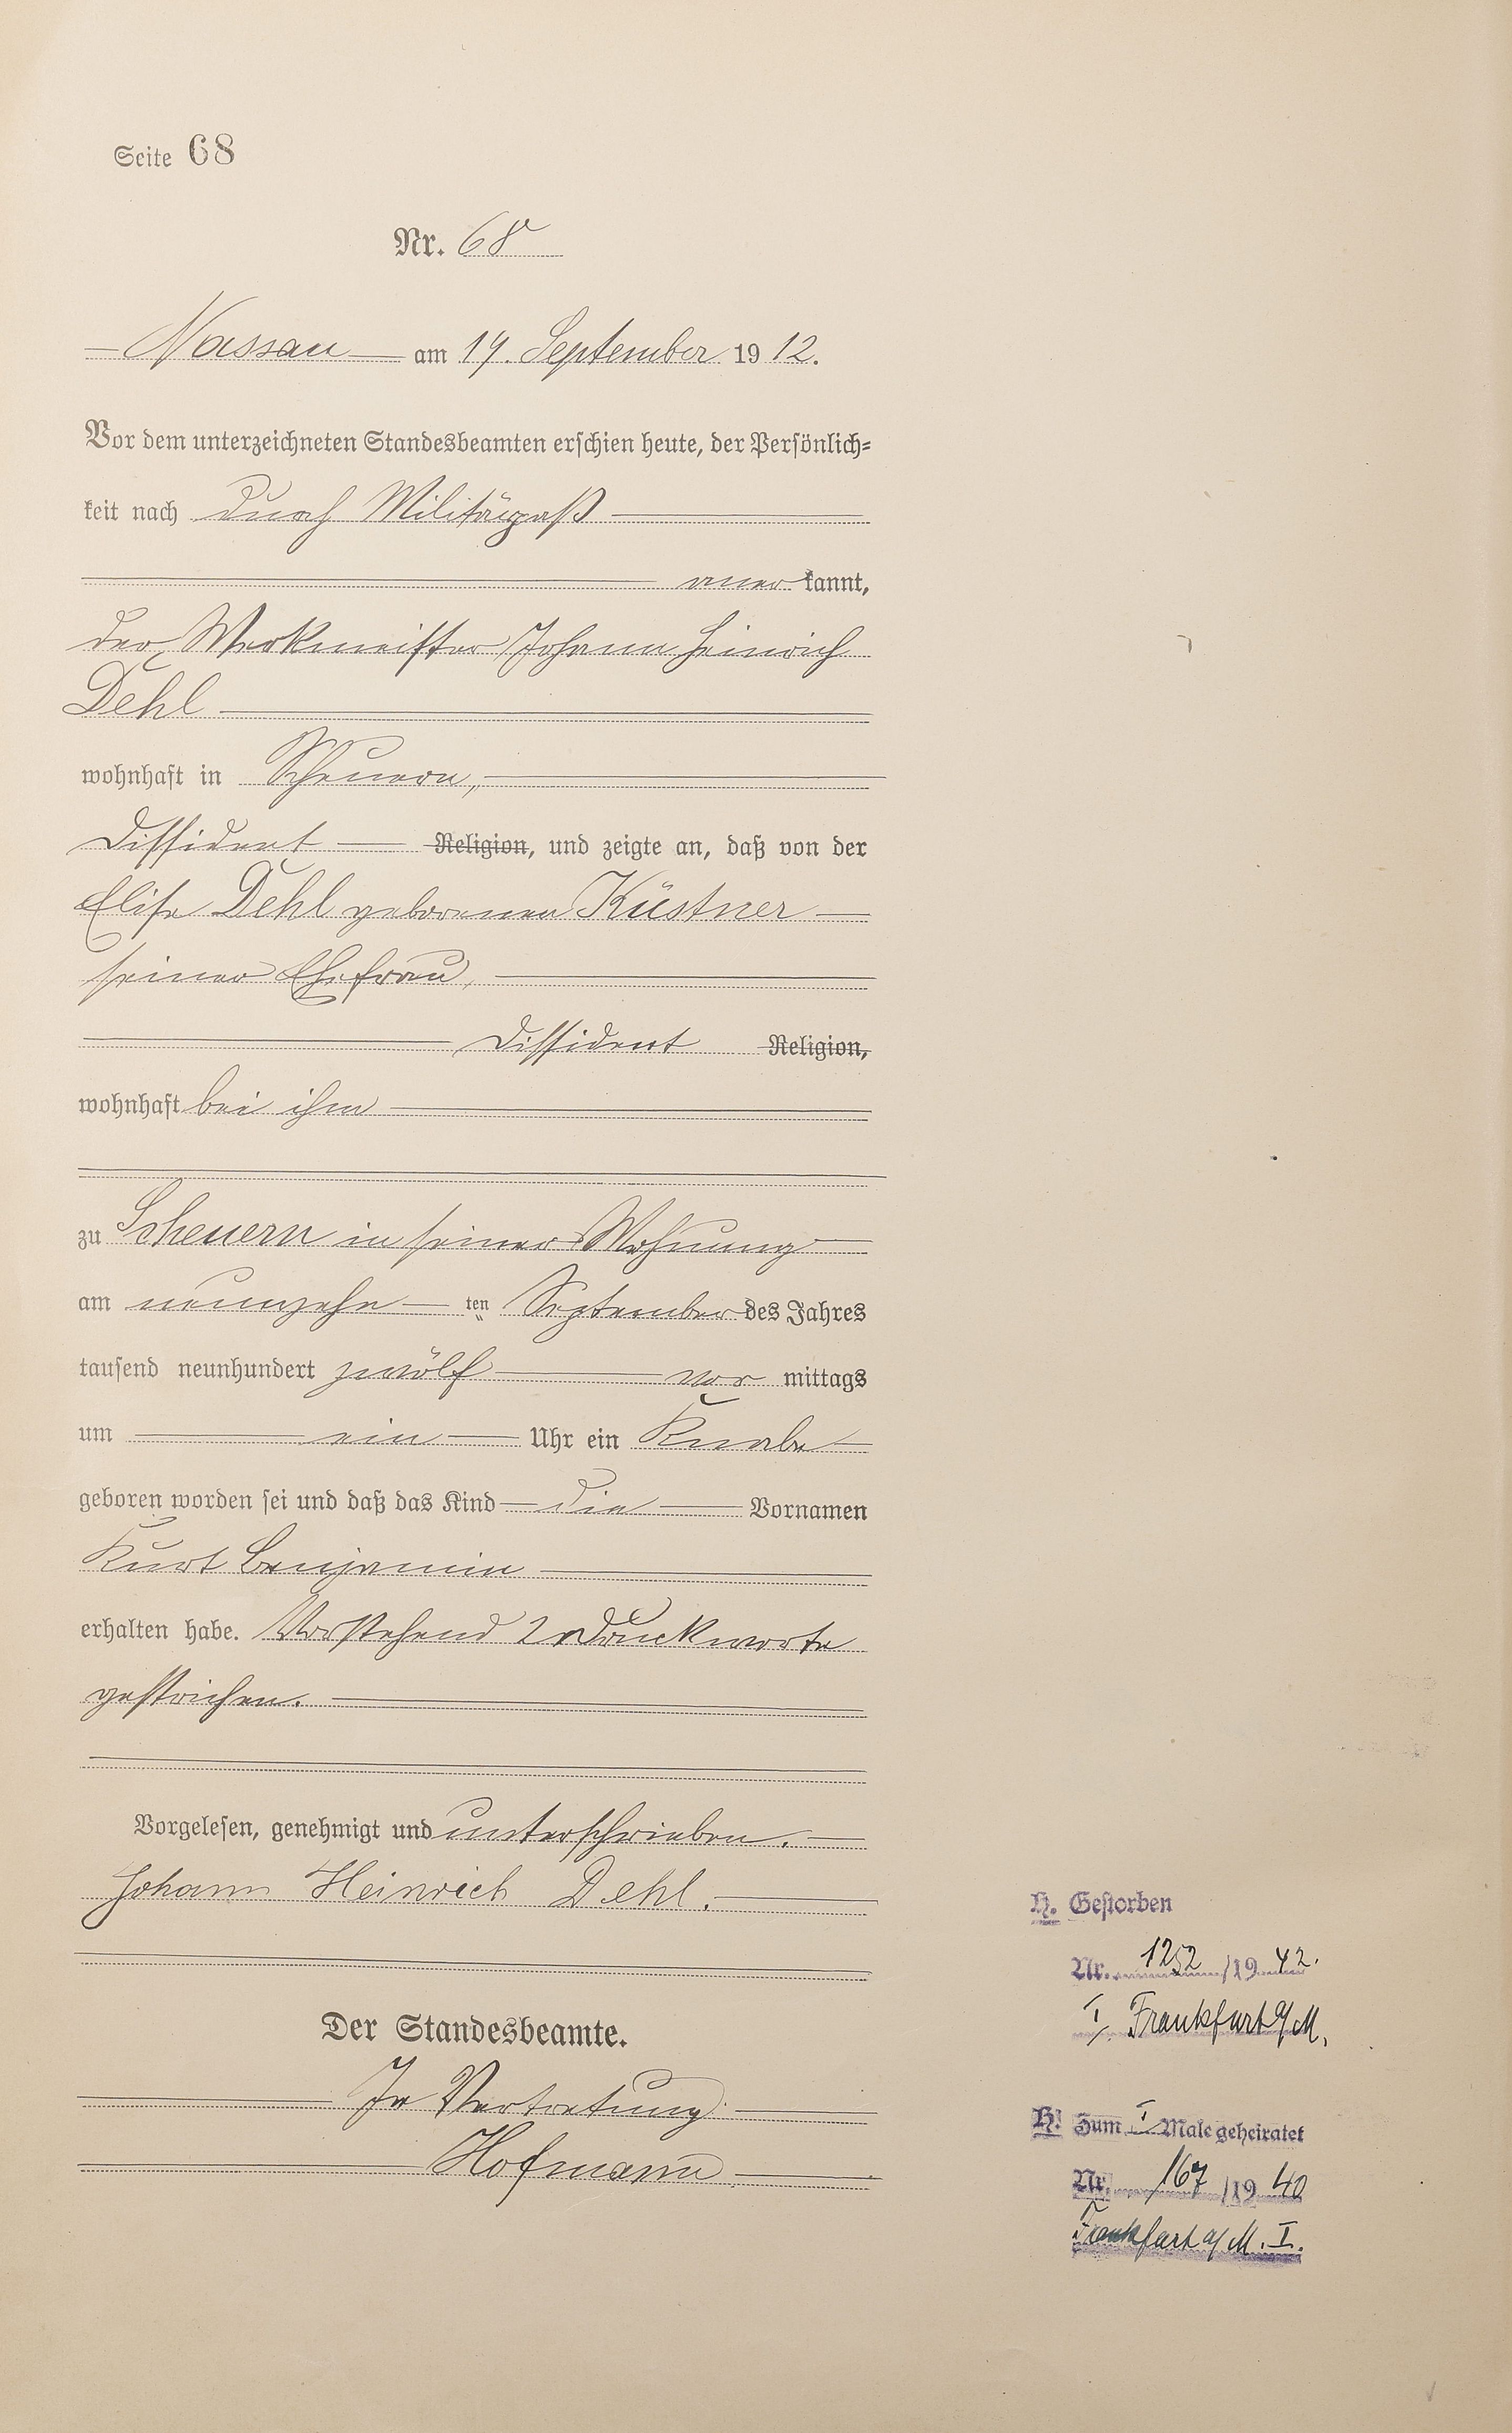 Seite 68
Nr. 68
Nassau am 19. September 1912.
Vor dem unterzeichneten Standesbeamten erschien heute, der Persönlich=
keit nach durch Militärpaß
aner kannt,
der Werkmeister Johann Heinrich
Dehl
wohnhaft in Scheuern,
Dissident Religion, und zeigte an, daß von der
Elise Dehl geborenen Küstner
seiner Ehefrau,
Dissident Religion,
wohnhaft bei ihm
zu Scheuern in seiner Wohnung
am neunzehn ten September des Jahres
tausend neunhundert zwölf vor mittags
um ein Uhr ein Knabe
geboren worden sei und daß das Kind die Vornamen
Kurt Benjamin
erhalten habe. Vorstehend 2 Druckworte
gestrichen.
Vorgelesen, genehmigt und unterschrieben.
Johann Heinrich Dehl.
Der Standesbeamte.
In Vertretung.
Hofmann
H. Gestorben
Nr. 1252 /19 42.
I, Frankfurt a/M.
H. Zum I Male geheiratet
Nr. 167 /19 40
Frankfurt a/M. I.